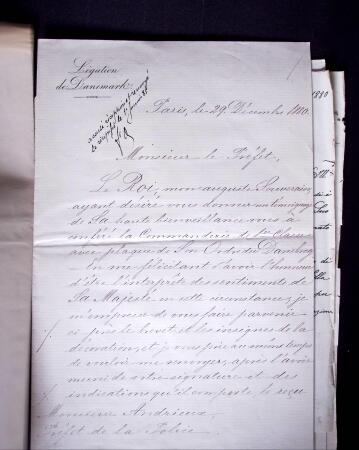 Légation
de Danemark
Paris, le 29 Décembre 1880.
Monsieur le Préfet,
Le Roi, mon auguste Souverain
ayant désiré vous donner un témoignage
de Sa haute bienveillance vous a
conféré la Commanderie de 1ère Classe
avec plaque de Son Ordre du Danebrog
En me félicitant d'avoir l'honneur
d'être l'interprète des sentiments de
Sa Majesté en cette circonstance, je
m'empresse de vous faire parvenir
ci près le brevet et les insignes de la
décoration, et je vous prie en même temps
de vouloir me renvoyer, après l'avoir
muni de votre signature et des
indications qu'il comporte, le reçu
Monsieur Andrieux
Préfet de la Police
1880